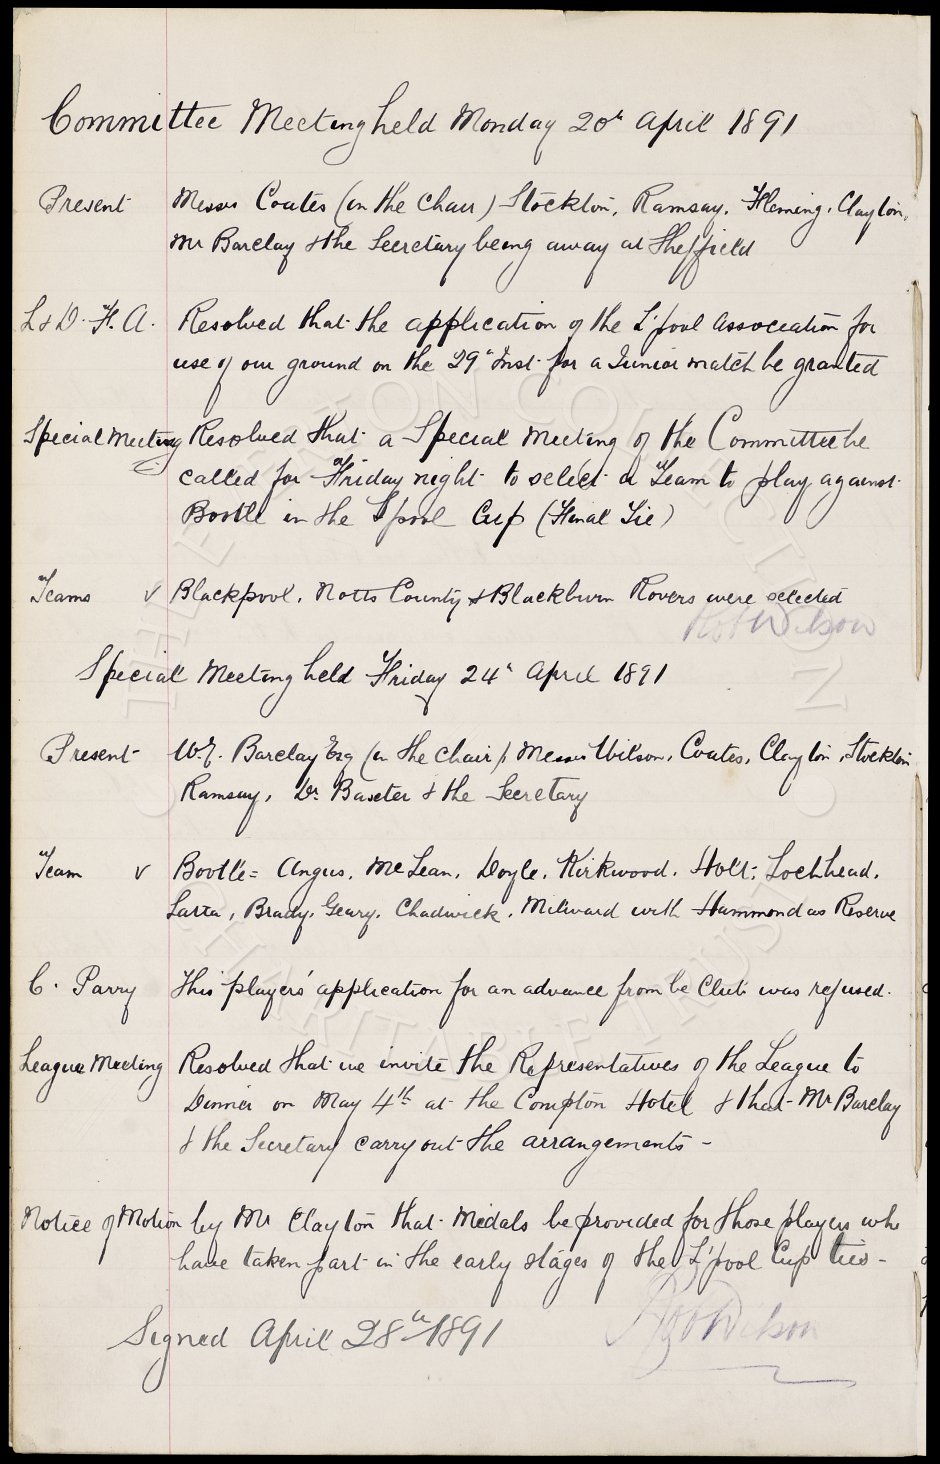 Committee Meeting held Monday 20th April 1891
Present Messrs Coates (in the Chair) Stockton, Ramsay, Fleming, Clayton,
Mr Barclay & the Secretary being away at Sheffield
L & D. F. A. Resolved that the application of the L'pool Association for
use of our ground on the 29th Inst. for a Junior match be granted
Special Meeting Resolved that a Special Meeting of the Committee be
called for Friday night to select a Team to play against
Bootle in the L'pool Cup (Final Tie)
Teams v Blackpool, Notts County & Blackburn Rovers were selected
Rob Wilson
Special Meeting held Friday 24th April 1891
Present W.E. Barclay Esq (in the Chair), Messrs Wilson, Coates, Clayton, Stockton
Ramsay, Dr. Baxter & the Secretary
Team v Bootle = Angus, McLean, Doyle, Kirkwood, Holt, Lochhead,
Latta, Brady, Geary, Chadwick, Milward with Hammond as Reserve
C. Parry This players' application for an advance from be Club was refused.
League Meeting Resolved that we invite the Representatives of the League to
Dinner on May 4th at the Compton Hotel & that Mr Barclay
& the Secretary carry out the arrangements -
Notice of Motion by Mr Clayton that Medals be provided for those players who
have taken part in the early stages of the L'pool Cup ties -
Signed April 28th 1891 Rob Wilson
THE EVERTON COLLECTION
CHARITABLE TRUST